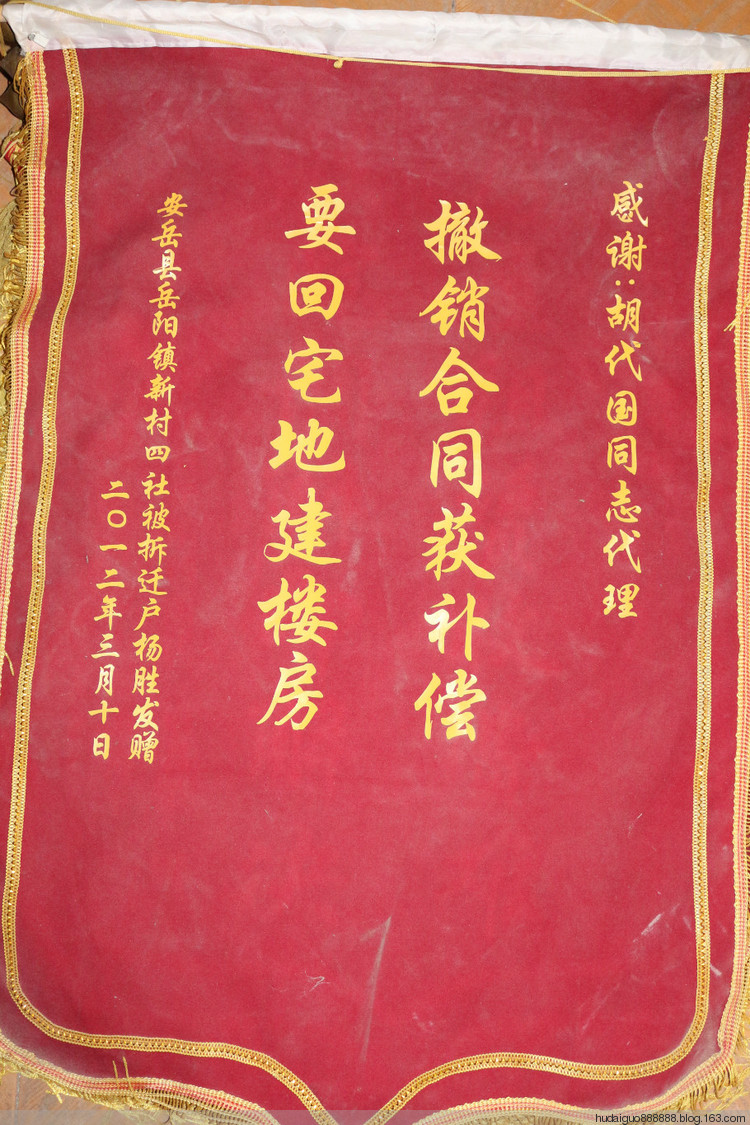 感谢:胡代国同志代理
撤销合同获补偿
要回宅地建楼房
安岳县岳阳镇新村四社被拆迁户杨胜发赠
二〇一二年三月十日
hudaiguo888888.blog.163.com